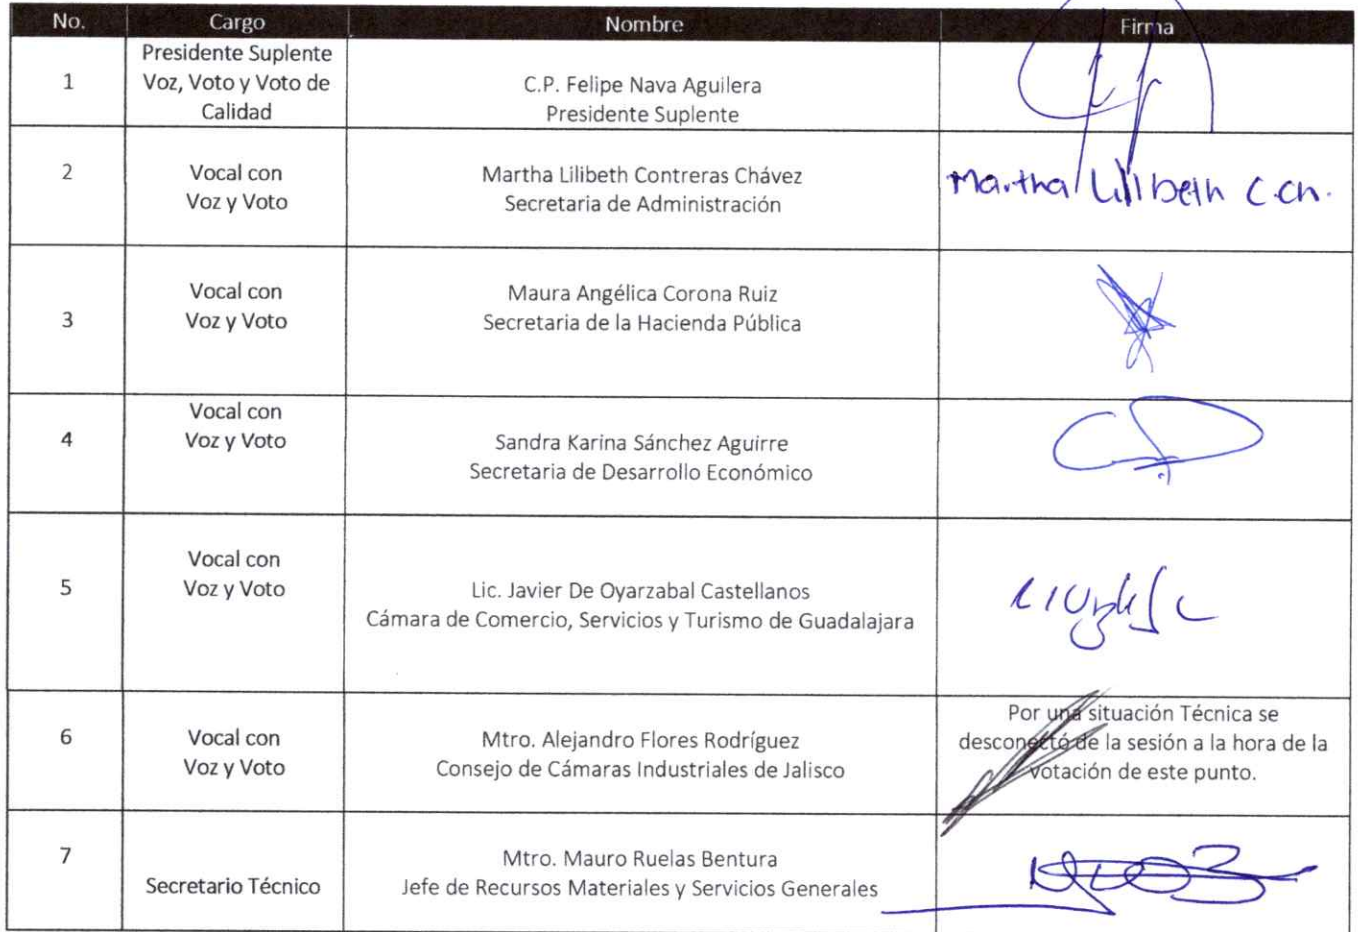 No. Cargo Nombre Firma
1
Presidente Suplente
Voz, Voto y Voto de
Calidad
C.P. Felipe Nava Aguilera
Presidente Suplente
2
Vocal con
Voz y Voto
Martha Lilibeth Contreras Chávez
Secretaria de Administración
Martha Lilibeth C.Ch.
3
Vocal con
Voz y Voto
Maura Angélica Corona Ruiz
Secretaria de la Hacienda Pública
4
Vocal con
Voz y Voto
Sandra Karina Sánchez Aguirre
Secretaria de Desarrollo Económico
5
Vocal con
Voz y Voto
Lic. Javier De Oyarzabal Castellanos
Cámara de Comercio, Servicios y Turismo de Guadalajara
6
Vocal con
Voz y Voto
Mtro. Alejandro Flores Rodríguez
Consejo de Cámaras Industriales de Jalisco
Por una situación Técnica se
desconectó de la sesión a la hora de la
votación de este punto.
7
Secretario Técnico
Mtro. Mauro Ruelas Bentura
Jefe de Recursos Materiales y Servicios Generales